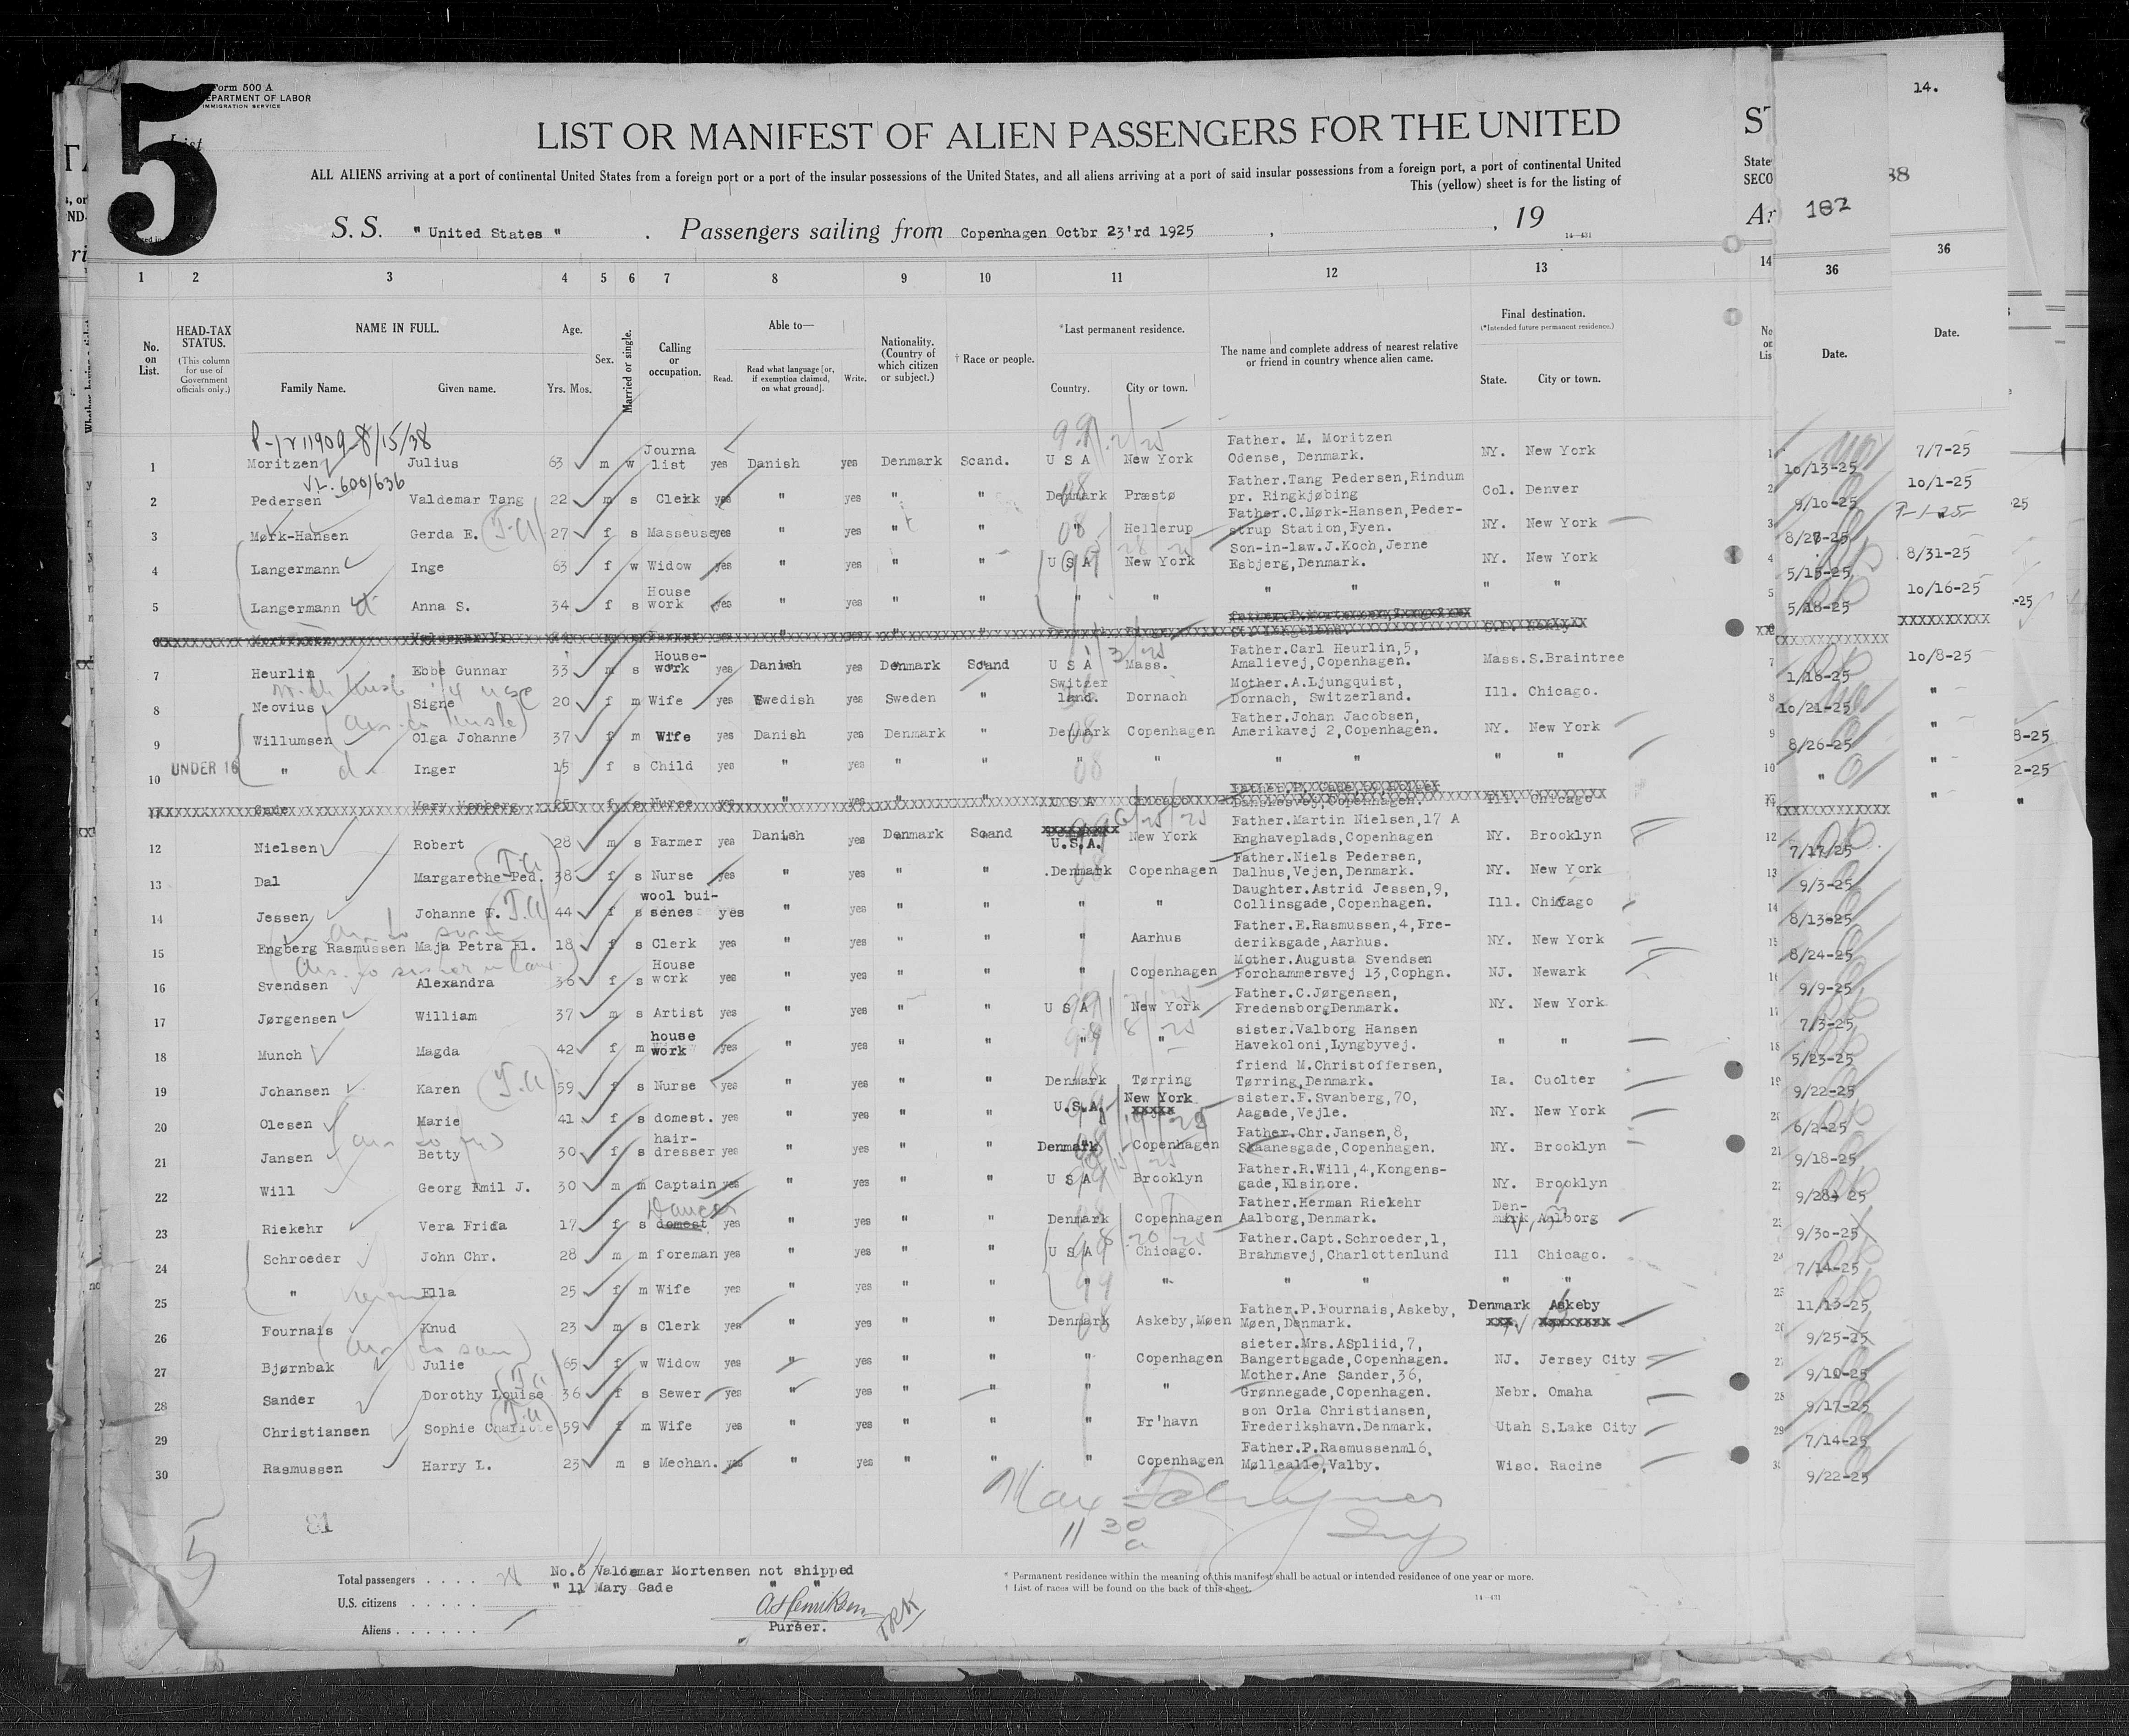 5
Form 500 A
DEPARTMENT OF LABOR
IMMIGRATION SERVICE
List
LIST OR MANIFEST OF ALIEN PASSENGERS FOR THE UNITED
ALL ALIENS arriving at a port of continental United States from a foreign port or a port of the insular possessions of the United States, and all aliens arriving at a port of said insular possessions from a foreign port, a port of continental United
This (yellow) sheet is for the listing of
S. S. " United States " . Passengers sailing from Copenhagen Octbr 23'rd 1925 , , 19
14—431
1 2 3 4 5 6 7 8 9 10 11 12 13
No. on List.
HEAD-TAX STATUS.
(This column for use of Government officials only.)
NAME IN FULL.
Family Name. Given name.
Age.
Yrs. Mos.
Sex.
Married or single.
Calling or occupation.
Able to—
Read. Read what language [or, if exemption claimed, on what ground]. Write.
Nationality. (Country of which citizen or subject.)
† Race or people.
*Last permanent residence.
Country. City or town.
The name and complete address of nearest relative or friend in country whence alien came.
Final destination.
(*Intended future permanent residence.)
State. City or town.
1 Moritzen Julius 63 m w Journalist yes Danish yes Denmark Scand. U S A New York Father. M. Moritzen Odense, Denmark. NY. New York
V.L. 600/636
2 Pedersen Valdemar Tang 22 m s Clerk yes " yes " " Denmark Præstø Father.Tang Pedersen,Rindum pr. Ringkjøbing Col. Denver
3 Mørk-Hansen Gerda E. 27 f s Masseuse yes " yes " " " Hellerup Father.C.Mørk-Hansen,Pederstrup Station,Fyen. NY. New York
4 Langermann Inge 63 f w Widow yes " yes " " U S A New York Son-in-law.J.Koch,Jerne Esbjerg,Denmark. NY. New York
5 Langermann Anna S. 34 f s House work yes " yes " " " " " " " "
7 Heurlin Ebbe Gunnar 33 m s House-work yes Danish yes Denmark Scand U S A Mass. Father.Carl Heurlin,5, Amalievej,Copenhagen. Mass. S.Braintree
8 Neovius Signe 20 f m Wife yes Swedish yes Sweden " Switzerland. Dornach Mother.A.Ljungquist, Dornach, Switzerland. Ill. Chicago.
9 Willumsen Olga Johanne 37 f m Wife yes Danish yes Denmark " Denmark Copenhagen Father.Johan Jacobsen, Amerikavej 2,Copenhagen. NY. New York
10 UNDER 16 " Inger 15 f s Child yes " yes " " " " " " " "
11 Gade Mary Monberg Nurse yes " yes " " U S A Chicago Danskesvej,Copenhagen. Ill. Chicago
12 Nielsen Robert 28 m s Farmer yes Danish yes Denmark Scand U.S.A. New York Father.Martin Nielsen,17 A Enghaveplads,Copenhagen NY. Brooklyn
13 Dal Margarethe Ped. 38 f s Nurse yes " yes " " .Denmark Copenhagen Father.Niels Pedersen, Dalhus,Vejen,Denmark. NY. New York
14 Jessen Johanne F. 44 f s wool buisenes yes " yes " " " " Daughter.Astrid Jessen,9, Collinsgade,Copenhagen. Ill. Chicago
15 Engberg Rasmussen Maja Petra El. 18 f s Clerk yes " yes " " " Aarhus Father.E.Rasmussen,4,Frederiksgade,Aarhus. NY. New York
16 Svendsen Alexandra 36 f s House work yes " yes " " " Copenhagen Mother.Augusta Svendsen Forchammersvej 13,Cophgn. NJ. Newark
17 Jørgensen William 37 m s Artist yes " yes " " U S A New York Father.C.Jørgensen, FredensborgDenmark. NY. New York
18 Munch Magda 42 f m house work yes " yes " " " " sister.Valborg Hansen Havekoloni,Lyngbyvej. " "
19 Johansen Karen 59 f s Nurse yes " yes " " Denmark Tørring friend M.Christoffersen, Tørring,Denmark. Ia. Cuolter
20 Olesen Marie 41 f s domest. yes " yes " " U.S.A. New York sister.F.Svanberg,70, Aagade,Vejle. NY. New York
21 Jansen Betty 30 f s hair-dresser yes " yes " " Denmark Copenhagen Father.Chr.Jansen,8, Skaanesgade,Copenhagen. NY. Brooklyn
22 Will Georg Emil J. 30 m m Captain yes " yes " " U S A Brooklyn Father.R.Will,4,Kongensgade,Elsinore. NY. Brooklyn
23 Riekehr Vera Frida 17 f s domest yes " yes " " Denmark Copenhagen Father.Herman Riekehr Aalborg,Denmark. Denmark Aalborg
24 Schroeder John Chr. 28 m m foreman yes " yes " " U S A Chicago. Father.Capt.Schroeder,1, Brahmsvej,Charlottenlund Ill Chicago.
25 " Ella 25 f m Wife yes " yes " " " " " " " "
26 Fournais Knud 23 m s Clerk yes " yes " " Denmark Askeby,Møen Father.P.Fournais,Askeby, Møen,Denmark. Denmark Askeby
27 Bjørnbak Julie 65 f w Widow yes " yes " " " Copenhagen sieter.Mrs.ASpliid,7, Bangertsgade,Copenhagen. NJ. Jersey City
28 Sander Dorothy Louise 36 f s Sewer yes " yes " " " " Mother.Ane Sander,36, Grønnegade,Copenhagen. Nebr. Omaha
29 Christiansen Sophie Charlotte 59 f m Wife yes " yes " " " Fr'havn son Orla Christiansen, Frederikshavn.Denmark. Utah S.Lake City
30 Rasmussen Harry L. 23 m s Mechan. yes " yes " " " Copenhagen Father.P.Rasmussenm16, Møllealle,Valby. Wisc. Racine
11 30 a
81
5
Total passengers . . . .
U.S. citizens . . . . . .
Aliens . . . . . .
No.6 Valdemar Mortensen not shipped
" 11 Mary Gade " "
A Henriksen
Purser.
* Permanent residence within the meaning of this manifest shall be actual or intended residence of one year or more.
† List of races will be found on the back of this sheet.
14—431
State
SECO
Ar
14
182
36
Date.
10/13-25
9/10-25
8/27-25
5/15-25
5/18-25
1/16-25
10/21-25
8/26-25
"
7/17/25
9/3-25
8/13-25
8/24-25
9/9-25
7/3-25
5/23-25
9/22-25
6/2-25
9/18-25
9/28-25
9/30-25
7/14-25
11/13-25
9/25-25
9/10-25
9/17-25
7/14-25
9/22-25
14.
38
36
Date.
7/7-25
10/1-25
8/31-25
10/16-25
10/8-25
"
"
"
"